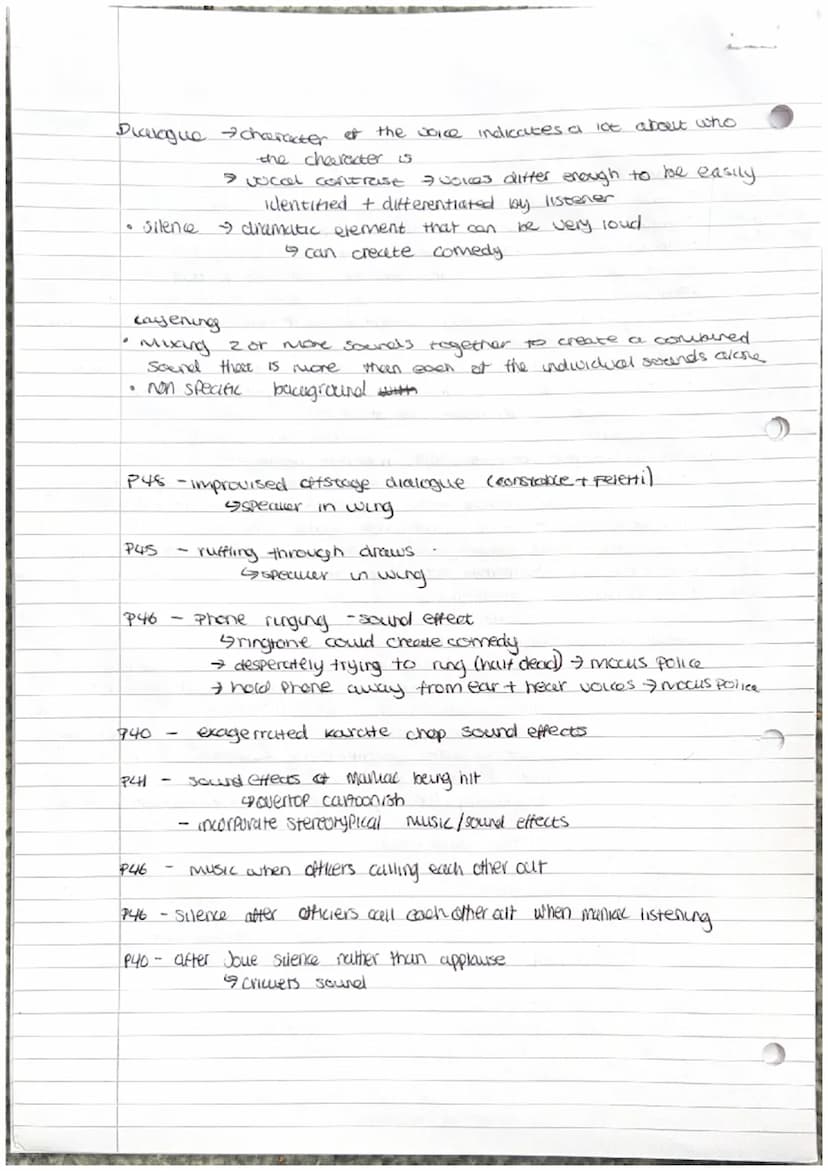 Dialogue → character of the voice indicates a lot about who
the character is
→ vocal contrast → voices differ enough to be easily
identified + differentiated by listener
• silence → dramatic element that can be very loud
↳ can create comedy
Layering
• Mixing 2 or more sounds together to create a combined
sound that is more than each of the individual sounds alone
• non specific background
P48 - improvised offstage dialogue (constable + Feletti)
↳ speaker in wing
P45 - ruffling through draws
↳ speaker in wing
P46 - Phone ringing - sound effect
↳ ringtone could create comedy
→ desperately trying to ring (half dead) → mocks police
→ hold phone away from ear + hear voices → mocks police
P40 - exagerrated karate chop sound effects
P41 - sound effects of Maniac being hit
↳ overtop cartoonish
- incorporate stereotypical music/sound effects
P46 - music when officers calling each other out
P46 - silence after officiers call each other out when maniac listening
P40 - after joke silence rather than applause
↳ crickets sound